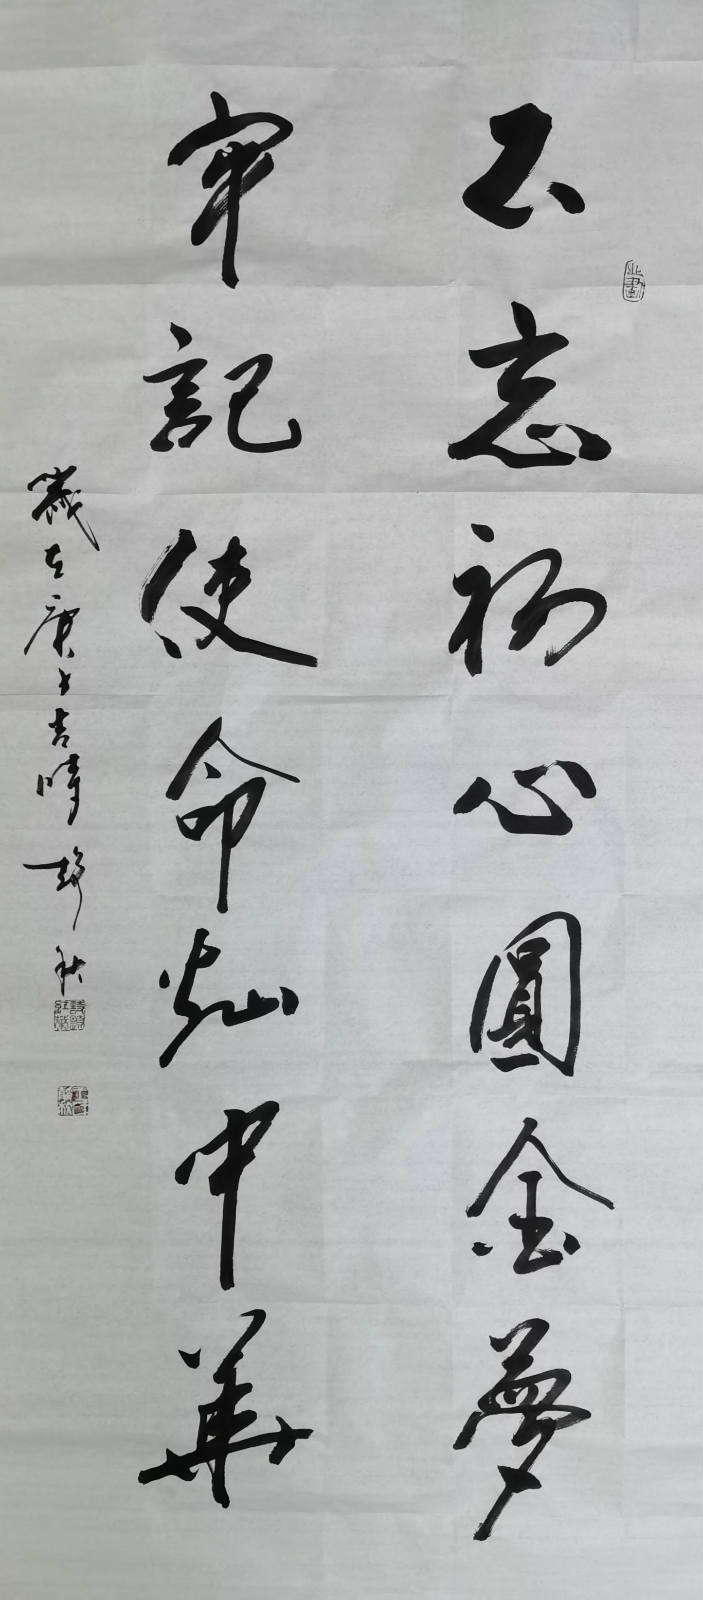 不忘初心圓金夢
牢記使命灿中華
歲在庚子吉時 静秋